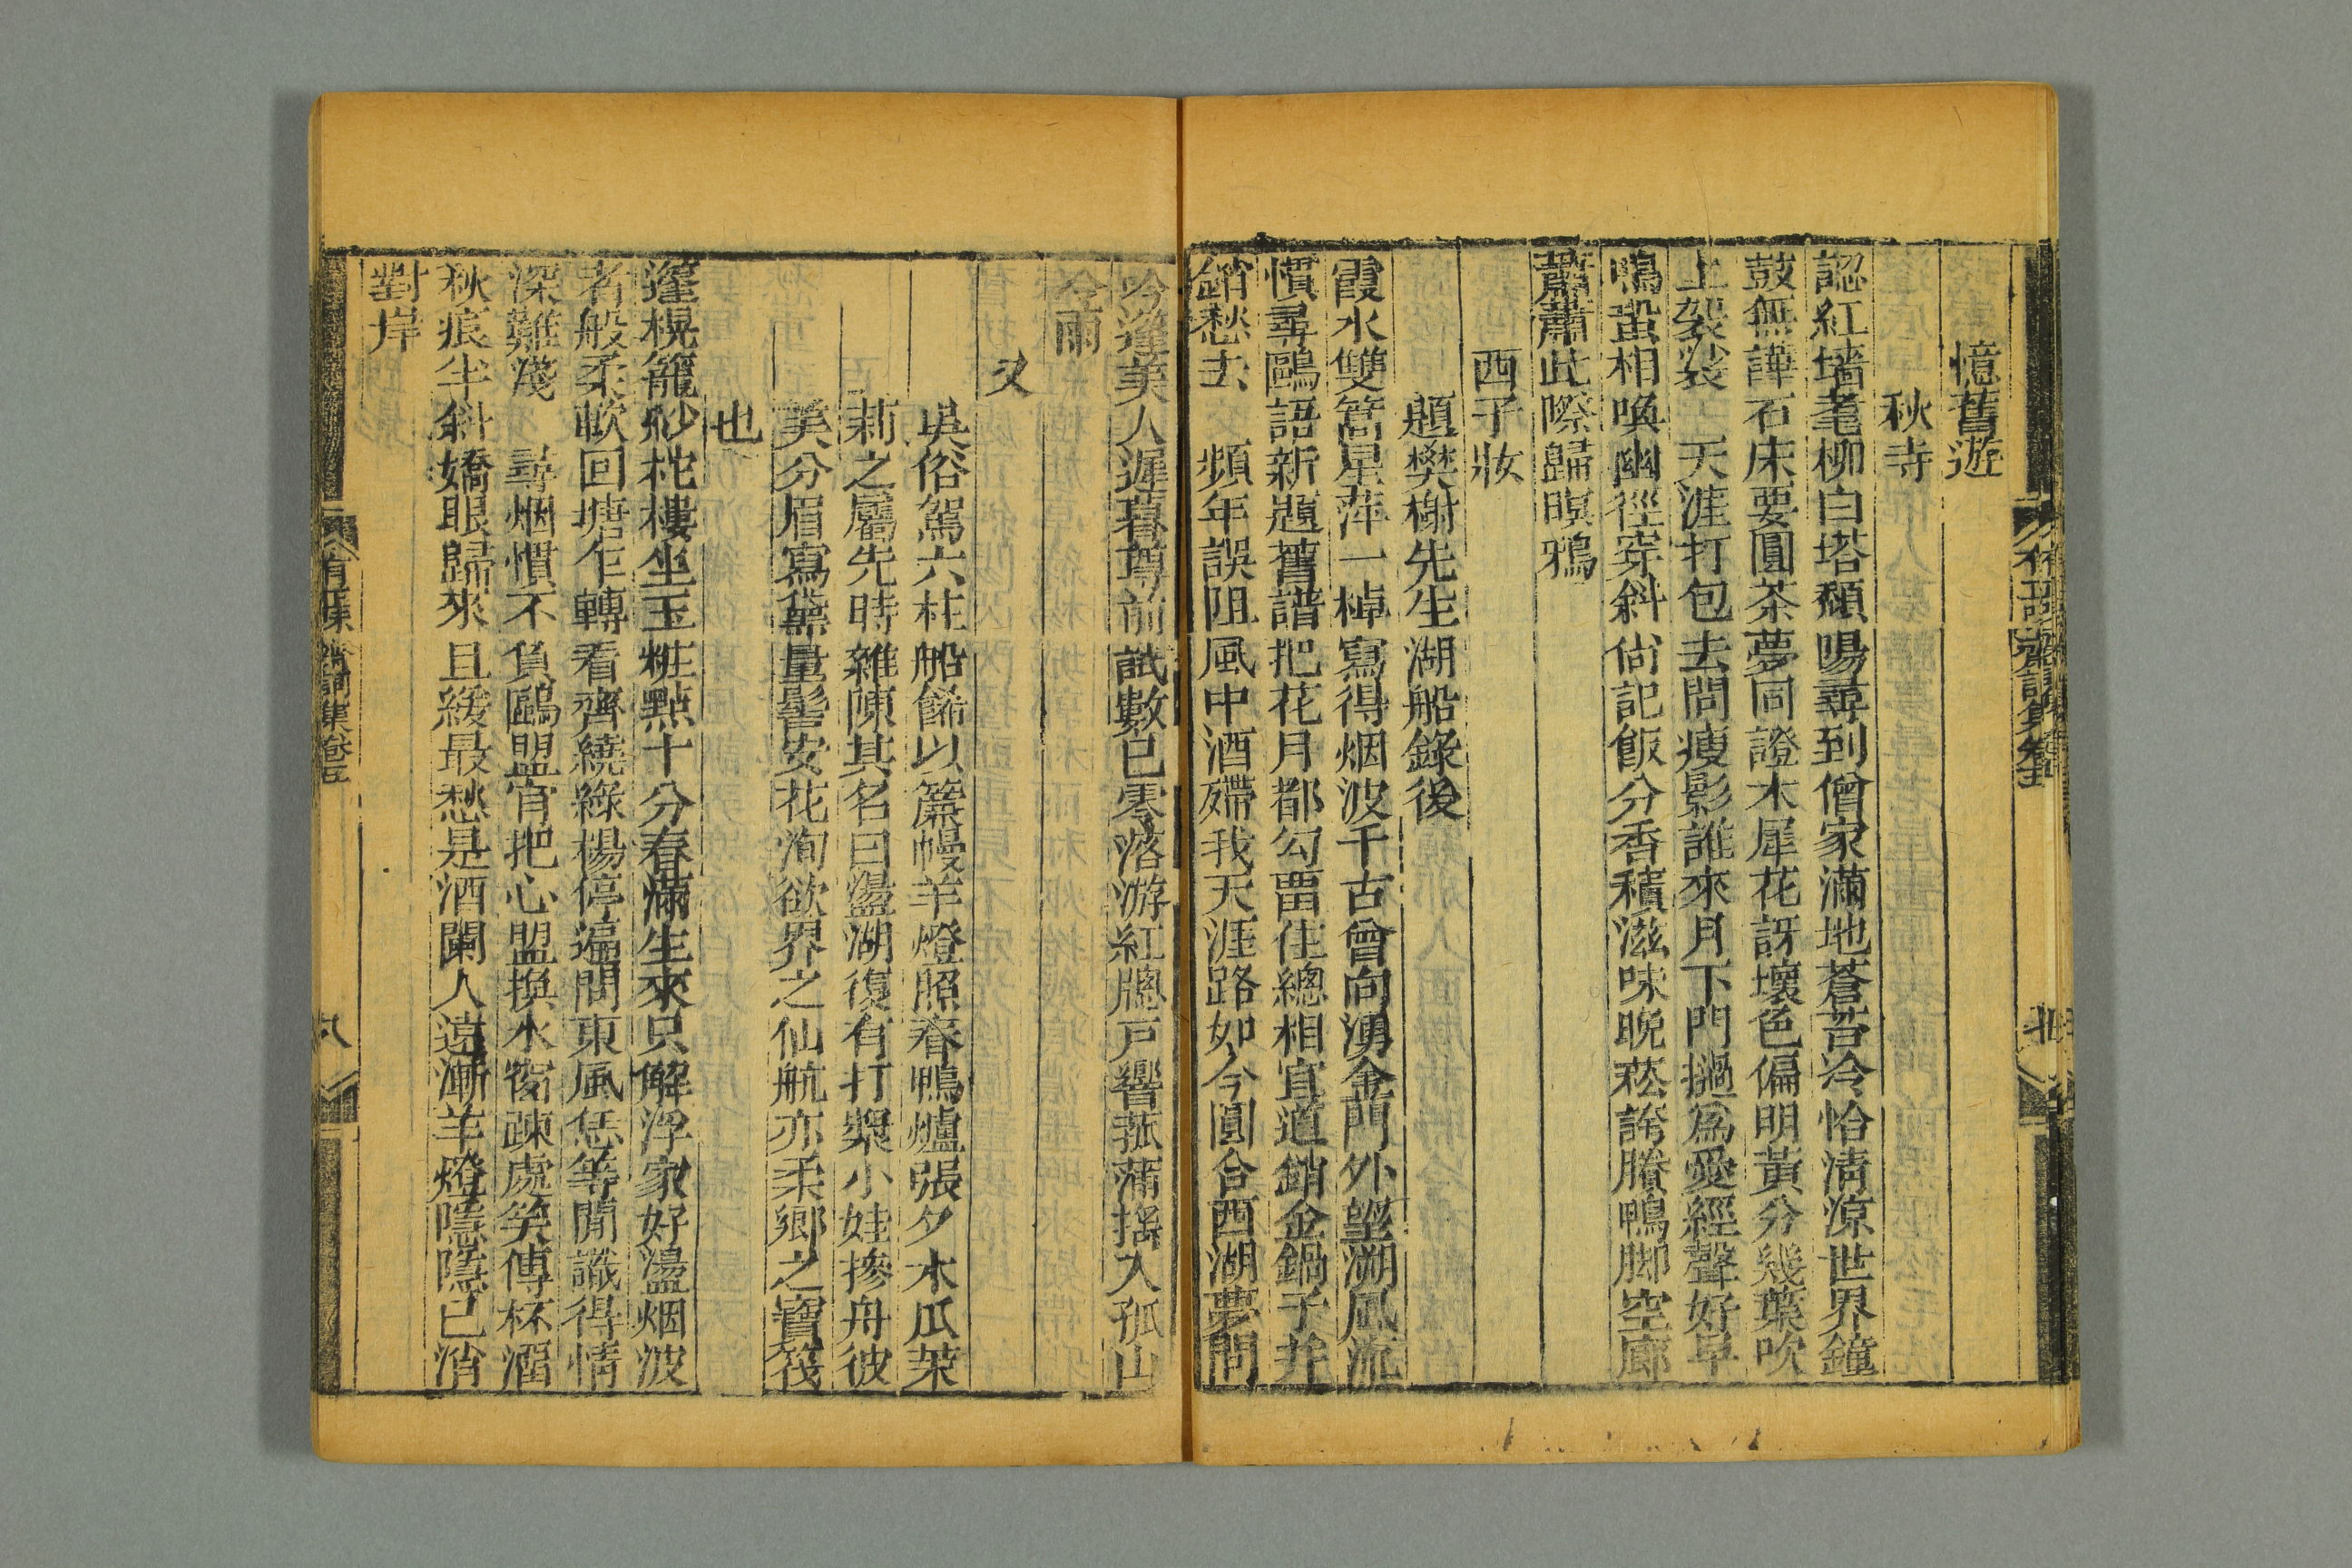 憶舊遊
秋寺
認紅墻耄柳白塔頹陽尋到僧家滿地蒼苔冷恰清涼世界鐘
鼓無譁石床要圓茶夢同證木犀花訝壞色偏明黃分幾葉吹
上袈裟　天涯打包去問瘦影誰來月下門撾爲愛經聲好早
鳴蛩相喚幽徑穿斜尙記飯分香積滋味晚菘誇賸鴨脚空廊
蕭蕭此際歸暝鴉
西子妝
題樊榭先生湖船錄後
霞水雙篙星萍一棹寫得烟波千古曾向湧金門外望溯風流
慣尋鷗語新題舊譜把花月都勾畱住總相宜道銷金鍋子幷
銷愁去　頻年誤阻風中酒殢我天涯路如今圓合西湖夢問
吟篷美人遲暮尊前試數已零落游紅牕戸響菰蒲搖入孤山
冷雨
又
吳俗駕六柱船餙以簾幔羊燈照春鴨爐張夕木瓜茉
莉之屬先時雜陳其名曰盪湖復有打槳小娃摻舟彼
美分眉寫黛量髻安花洵欲界之仙航亦柔鄉之寶筏
也
篷榥籠紗柁樓坐玉粧點十分春滿生來只解浮家好盪烟波
者般柔軟回塘乍轉看齊繞綠楊停遍問東風恁等閒識得情
深難淺　尋烟慣不負鷗盟肯把心盟換水窗疎處笑傳杯溜
秋痕半斜嬌眼歸來且緩最愁是酒闌人遠漸羊燈隱隱已消
對岸